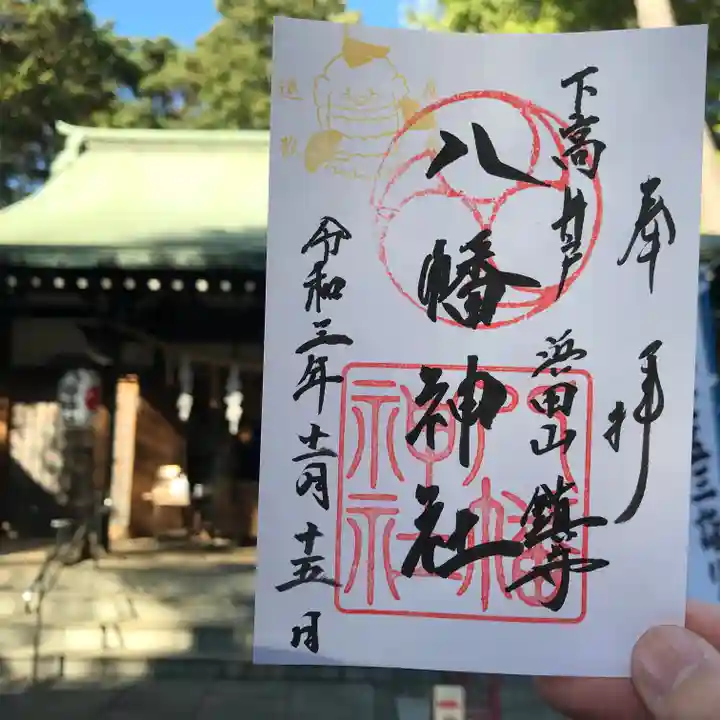 奉拝
下高井戸
浜田山鎮守
八幡神社
令和三年十一月十五日
八幡
神社